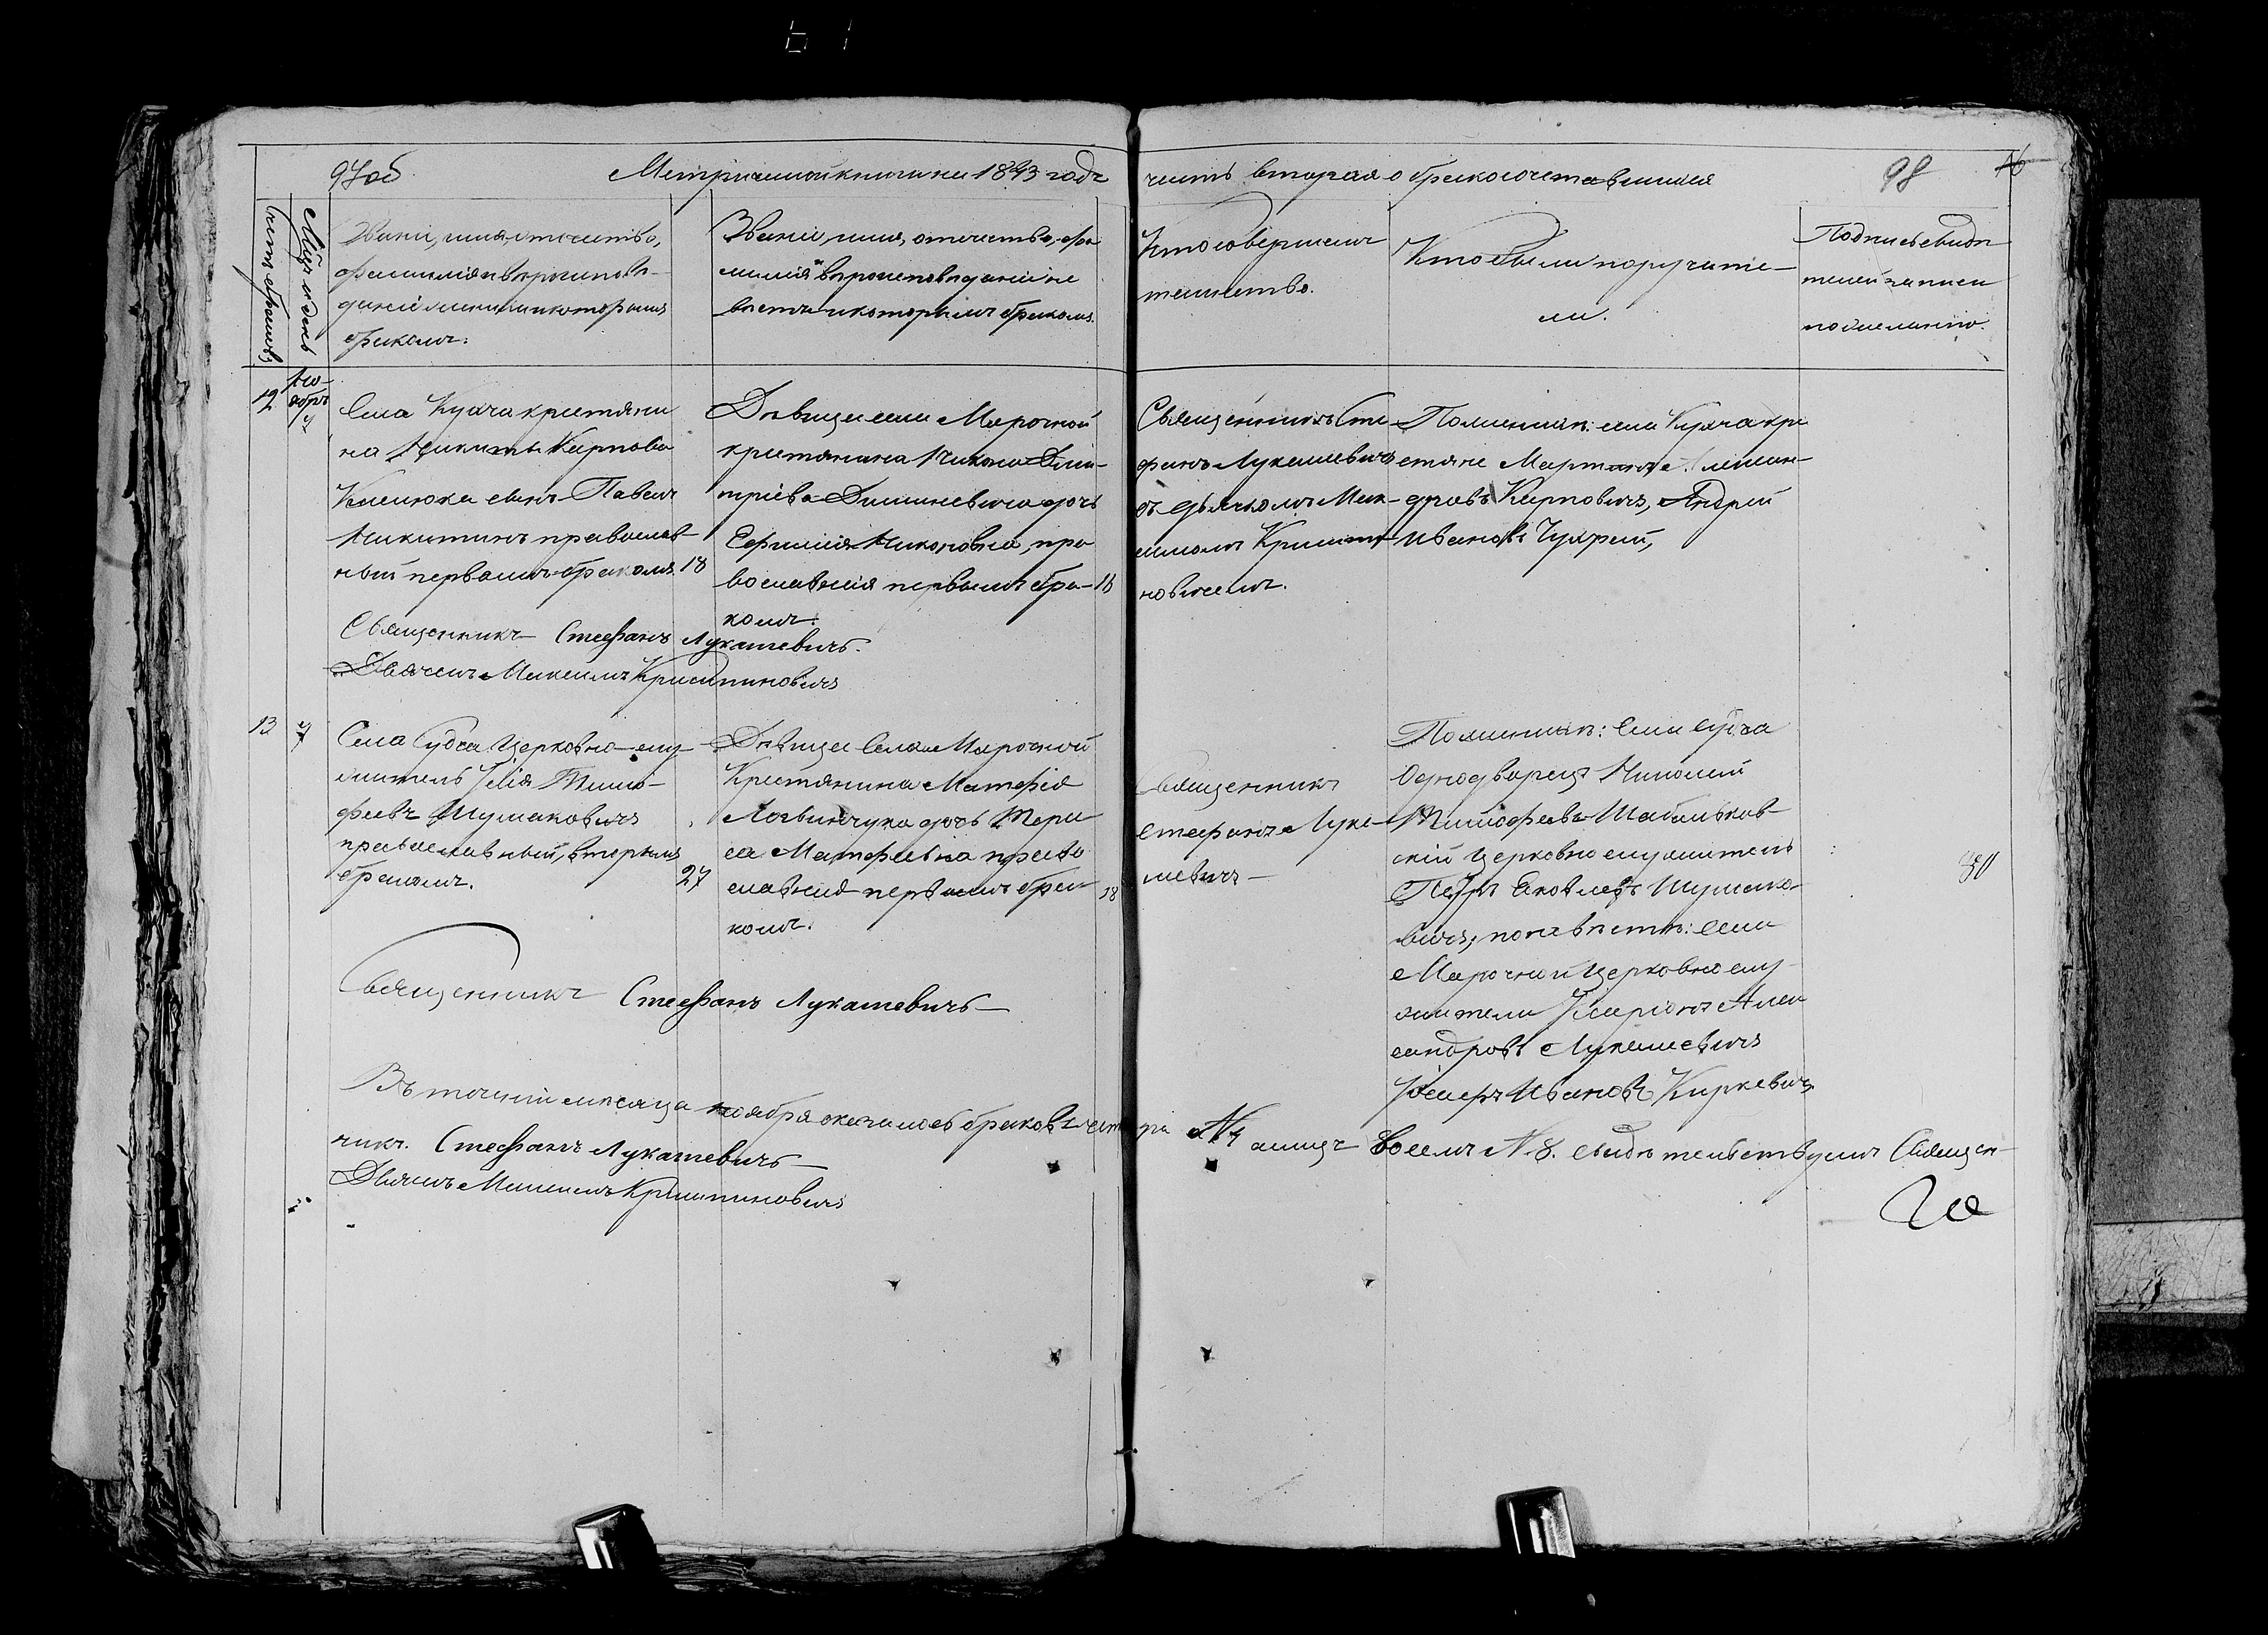 97об Метричной книги на 1843 годъ
часть вторая о бракосочетавшихся 98
Счетъ браковъ
Мѣсяцъ и день
Званіе, имя, отечество,
фамилія и вѣроисповѣ-
даніе жениха и которымъ
бракомъ.
Званіе, имя, отечество, фа
милія и вѣроисповѣданіе не
вѣсты и которымъ бракомъ.
Кто совершалъ
таинство.
Кто были поручите-
ли.
Подпись свидѣ
телей записи
по желанію.
12 Но-
ября
4
Села Кухча крестяни
на Никиты Карпова
сынъ Павелъ
Никитинъ православ
ный первымъ бракомъ 18
Дѣвица села Марочной
крестянина Никона Дми-
тріева дочь
Евфимія Никоновна, пра
вославная первымъ бра-
комъ.
Священникъ Сте
фанъ Лукашевичъ
съ дьячкомъ Мак-
симомъ Криштп
новичемъ.
По женихѣ: села Кухча кре
стяне Мартинъ Алексан-
дровъ Карповичъ, Андрей
Ивановъ
Священникъ Стефанъ Лукашевичъ.
Дьячекъ Максимъ
13 4
Села Судча Церковно-слу
житель Илія Тимо-
феевъ Шумаковичъ
православный, вторымъ
бракомъ. 27
Дѣвица Села Марочной
Крестянина Матфія
Логвинчука дочь
Матфеевна право
славная первымъ бра
комъ. 18
Священникъ
Стефанъ Лука-
шевичъ —
По женихѣ: Села Судча
Однодворецъ Николай
Тимофеевъ
скій Церковно служитель
Петръ Яковлевъ Шумако-
вичъ, по невѣстѣ: села
Марочной Церковно слу-
жители Иларіонъ Алек
сандровъ Лукашевичъ
Іосифъ Ивановъ Киркевичъ
Священникъ Стефанъ Лукашевичъ —
Въ теченіи мѣсяца ноября оказалось браковъ четыре № 4 а лицъ восемъ № 8. свидѣтельствуемъ Священ-
никъ Стефанъ Лукашевичъ —
Дьячекъ Максимъ